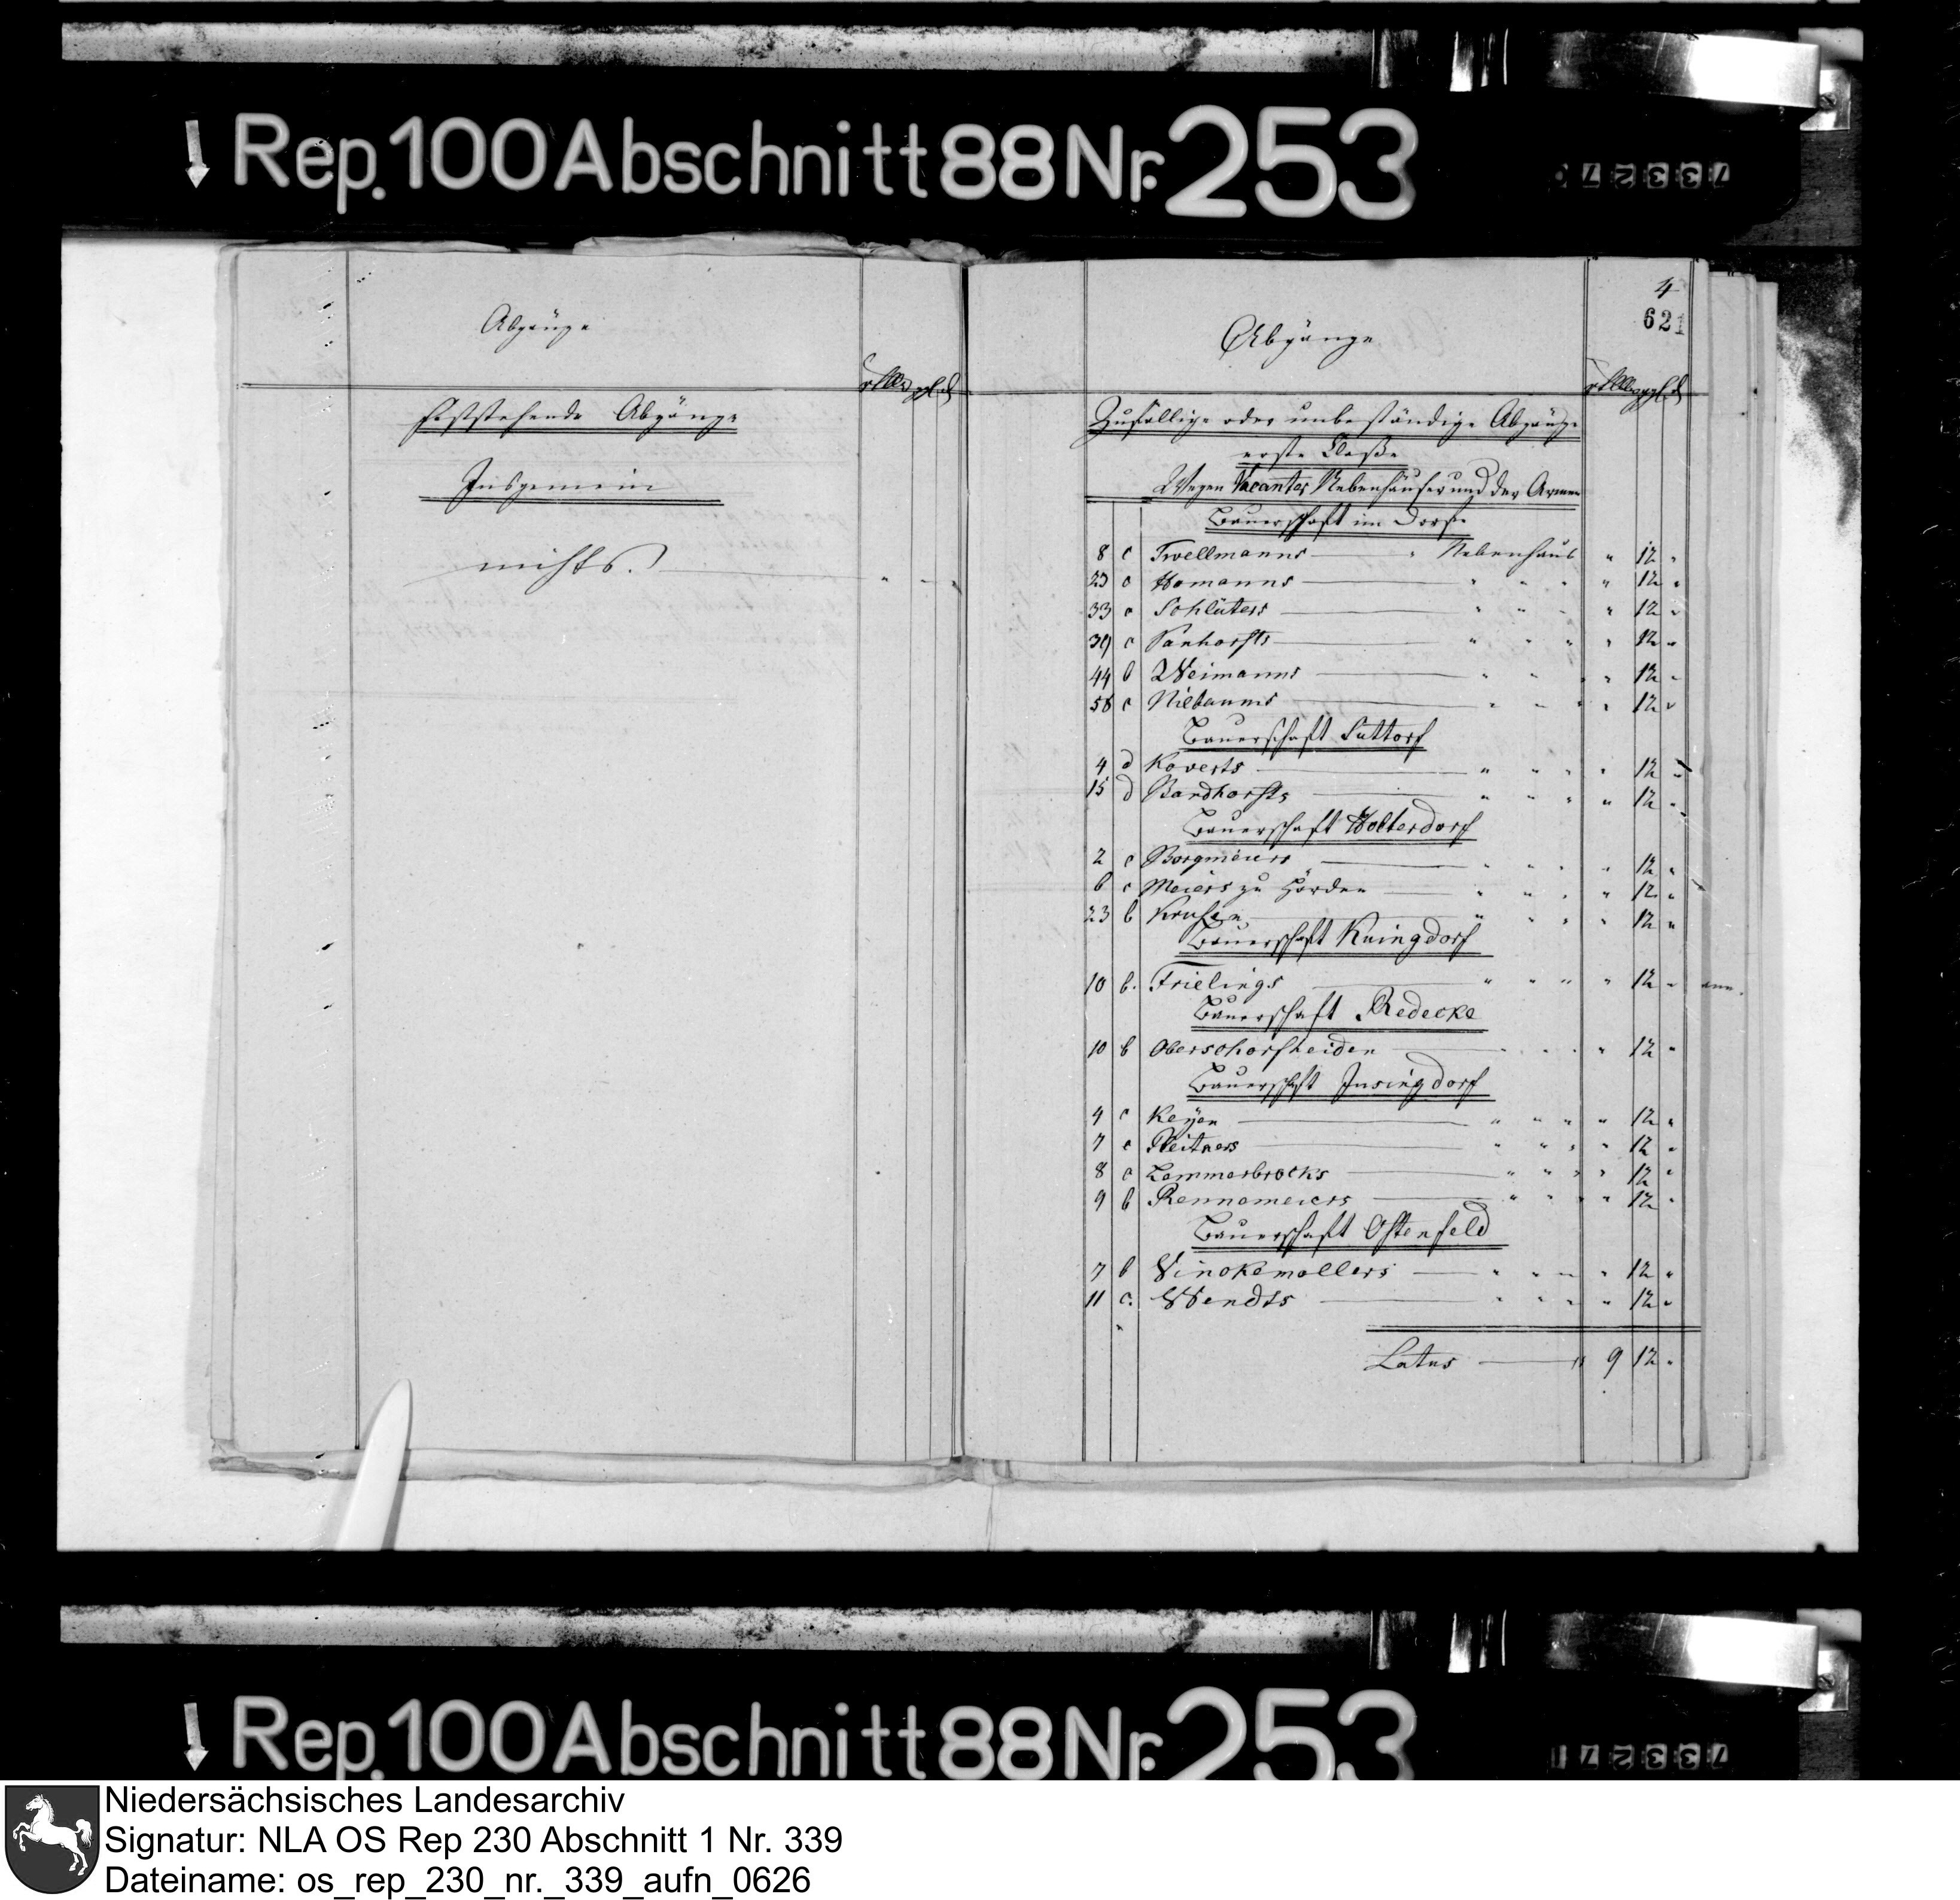 Rep. 100 Abschnitt 88 Nr. 253
Abgänge
feststehende Abgänge
Insgemein
nichts. " " "
4
621
Abgänge
Zufällige oder unbeständige Abgänge
erste Claße
Wegen Vacanter Nebenhäuser und der Armen
Bauerschaft im Dorfe
8 c Twellmanns Nebenhaus " 12 "
23 c Homanns " " " " 12 "
33 c Schlüters " " " " 12 "
39 c Vanhorsts " " " " 12 "
44 b Weimanns " " " " 12 "
58 c Niebaums " " " " 12 "
Bauerschaft Suttorf
4 d Koverts " " " " 12 "
15 d Bandhorsts " " " " 12 "
Bauerschaft Holterdorf
2 c Borgmeiers " " " " 12 "
6 c Meiers zu Hörden " " " " 12 "
23 b Krusen " " " " 12 "
Bauerschaft Küingdorf
10 b. Frielings " " " " 12 "
Bauerschaft Redecke
10 b Oberschorfheiden " " " " 12 "
Bauerschaft Insingdorf
4 c Keyen " " " " 12 "
7 c Pleitners " " " " 12 "
8 c Lammerbrocks " " " " 12 "
9 b Rennemeiers " " " " 12 "
Bauerschaft Ostenfeld
7 b Vinckemollers " " " " 12 "
11 c. Wendts " " " " 12 "
Latus " 9 12 "
Rep. 100 Abschnitt 88 Nr. 253
Niedersächsisches Landesarchiv
Signatur: NLA OS Rep 230 Abschnitt 1 Nr. 339
Dateiname: os_rep_230_nr._339_aufn_0626